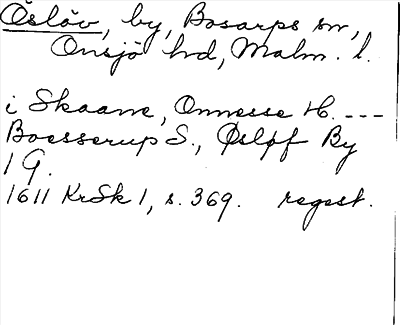 Öslöv, by, Bosarps sn,
Onsjö hrd, Malm. l.
i Skaane, Onnesse H. ---
Boesserup S., Øsløf By
1 G.
1611 KrSk 1, s. 369. regest.